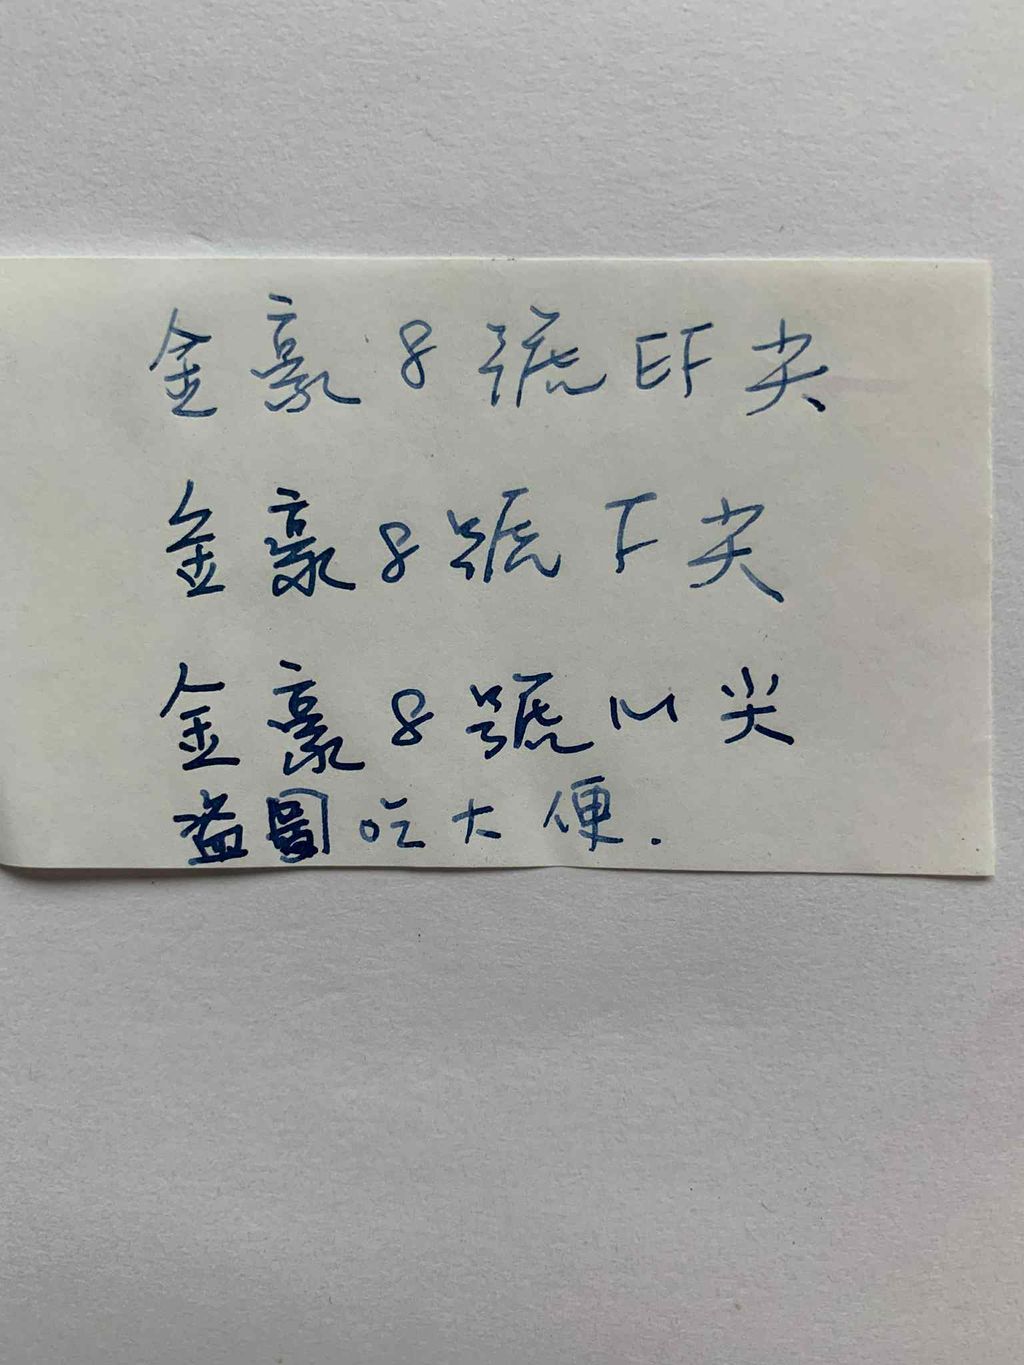 金豪8號EF尖
金豪8號F尖
金豪8號M尖
盗圖吃大便.